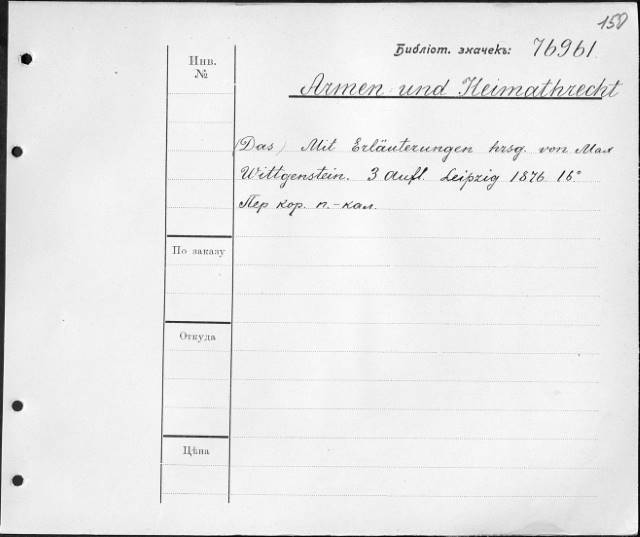 150
Библіот. значекъ: 76961
Инв.
№
Armen und Heimathrecht
(Das) Mit Erläuterungen hrsg. von Max
Wittgenstein. 3 Aufl. Leipzig 1876. 16°
Пер кор. п.-кал.
По заказу
Откуда
Цѣна